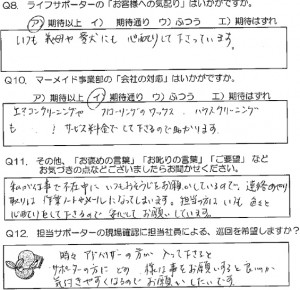 Q8. ライフサポーターの「お客様への気配り」はいかがですか。
ア）期待以上 イ）期待通り ウ）ふつう エ）期待はずれ
いつも 義母や愛犬にも 心配りして下さっています。
Q10. マーメイド事業部の「会社の対応」はいかがですか。
ア）期待以上 イ）期待通り ウ）ふつう エ）期待はずれ
エアコンクリーニングや フローリングのワックス、ハウスクリーニング
も、 サービス料金でして下さるので助かります。
Q11. その他、「お褒めの言葉」「お叱りの言葉」「ご要望」など
お気づきの点などございましたらお聞かせください。
私が仕事で不在中に いつもおそうじをお願いしているので、連絡のやり
取りは 作業ノートやメールになってしまいます。担当の方は いつも
心配りをして下さるので 安心して お願いしています。
Q12. 担当サポーターの現場確認に担当社員による、巡回を希望しますか？
時々 アドバイザーの方が 入って下さると
サポーターの方に どの 様な事をお願いすると良いか
気付きやすくなるので お願いしたいです。